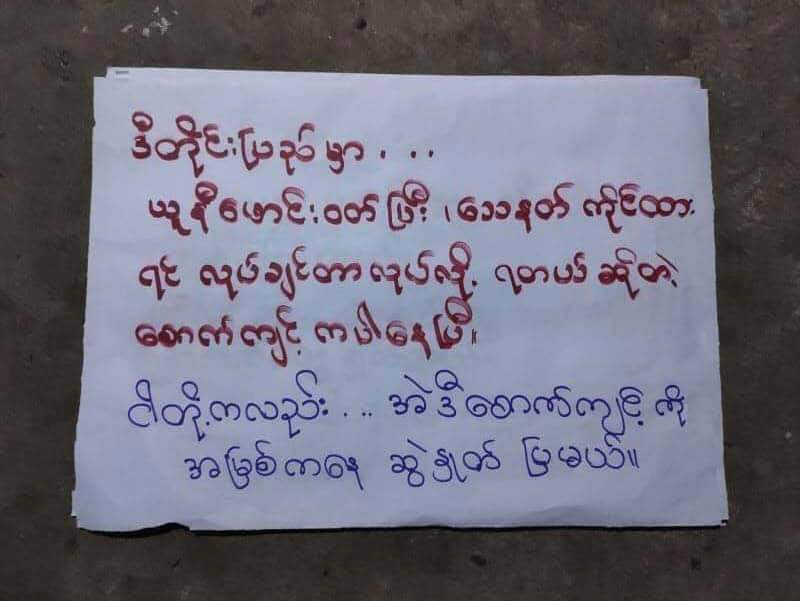 ဒီတိုင်းပြည်မှာ . . .
ယူနီဖောင်းဝတ်ပြီး ၊ သေနတ် ကိုင်ထား
ရင် လုပ်ချင်တာ လုပ်လို့ ရတယ် ဆိုတဲ့
စောက်ကျင့် ကပါနေပြီ။
ငါတို့ကလည်း . . . အဲဒီစောက်ကျင့် ကို
အမြစ်ကနေ ဆွဲနှုတ် ပြမယ်။